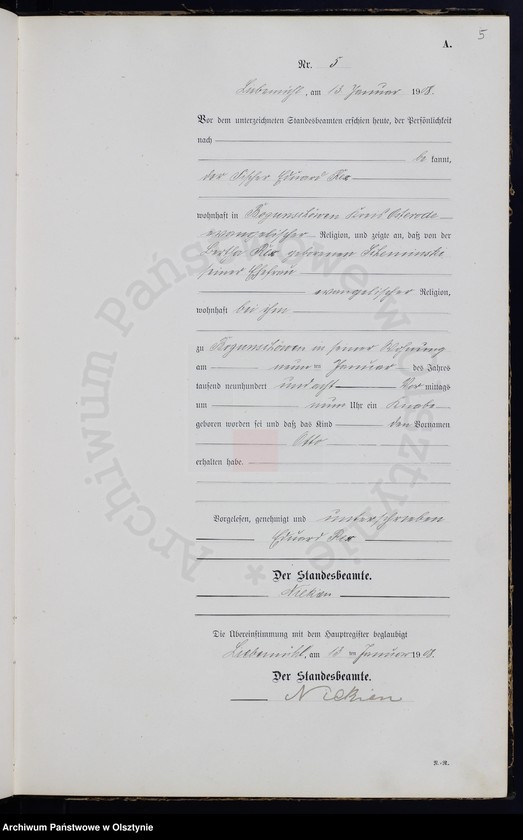 5
A.
Nr. 5
Liebemühl, am 13 Januar 1908.
Vor dem unterzeichneten Standesbeamten erschien heute, der Persönlichkeit
nach
be kannt,
der Fischer Eduard Rex
wohnhaft in Kreis Osterode
evangelischer Religion, und zeigte an, daß von der
Bertha Rex geborenen
seiner Ehefrau
evangelischer Religion,
wohnhaft bei ihm
zu in seiner Wohnung
am neunten Januar des Jahres
tausend neunhundert und acht Vor mittags
um neun Uhr ein Knabe
geboren worden sei und daß das Kind den Vornamen
Otto
erhalten habe.
Vorgelesen, genehmigt und unterschrieben
Eduard Rex
Der Standesbeamte.
Nickien
Die Übereinstimmung mit dem Hauptregister beglaubigt
Liebemühl, am 13 ten Januar 1908.
Der Standesbeamte.
Nickien
R.-R.
Archiwum Państwowe w Olsztynie *
Archiwum Państwowe w Olsztynie